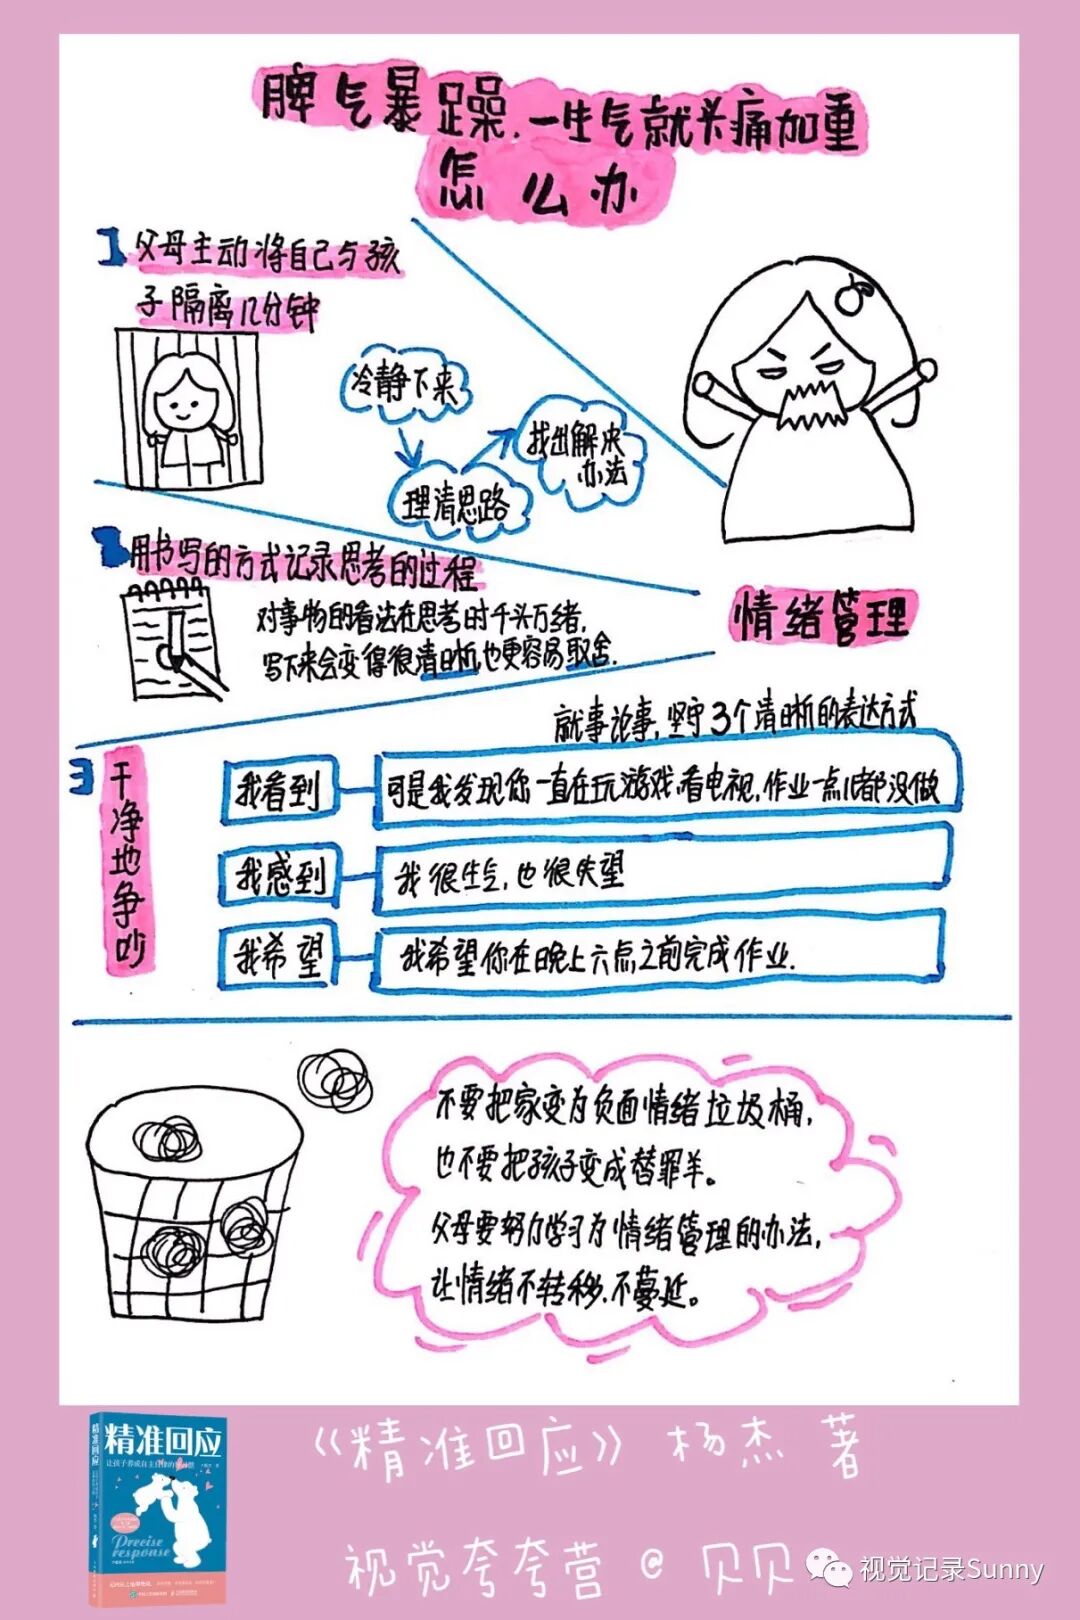 脾气暴躁.一生气就头痛加重
怎么办
1 父母主动将自己与孩
子隔离几分钟
冷静下来
理清思路
找出解决
办法
2 用书写的方式记录思考的过程
对事物的看法在思考时千头万绪,
写下来会变得很清晰,也更容易取舍.
情绪管理
就事论事,坚守3个清晰的表达方式
3 干净地争吵
我看到
可是我发现你一直在玩游戏,看电视,作业一点儿都没做
我感到
我很生气,也很失望
我希望
我希望你在晚上六点之前完成作业.
不要把家变为负面情绪垃圾桶,
也不要把孩子变成替罪羊。
父母要努力学习为情绪管理的办法,
让情绪不转移.不蔓延。
精准回应
精准回应
Precise
response
《精准回应》杨杰 著
视觉夸夸营@贝贝
视觉记录Sunny